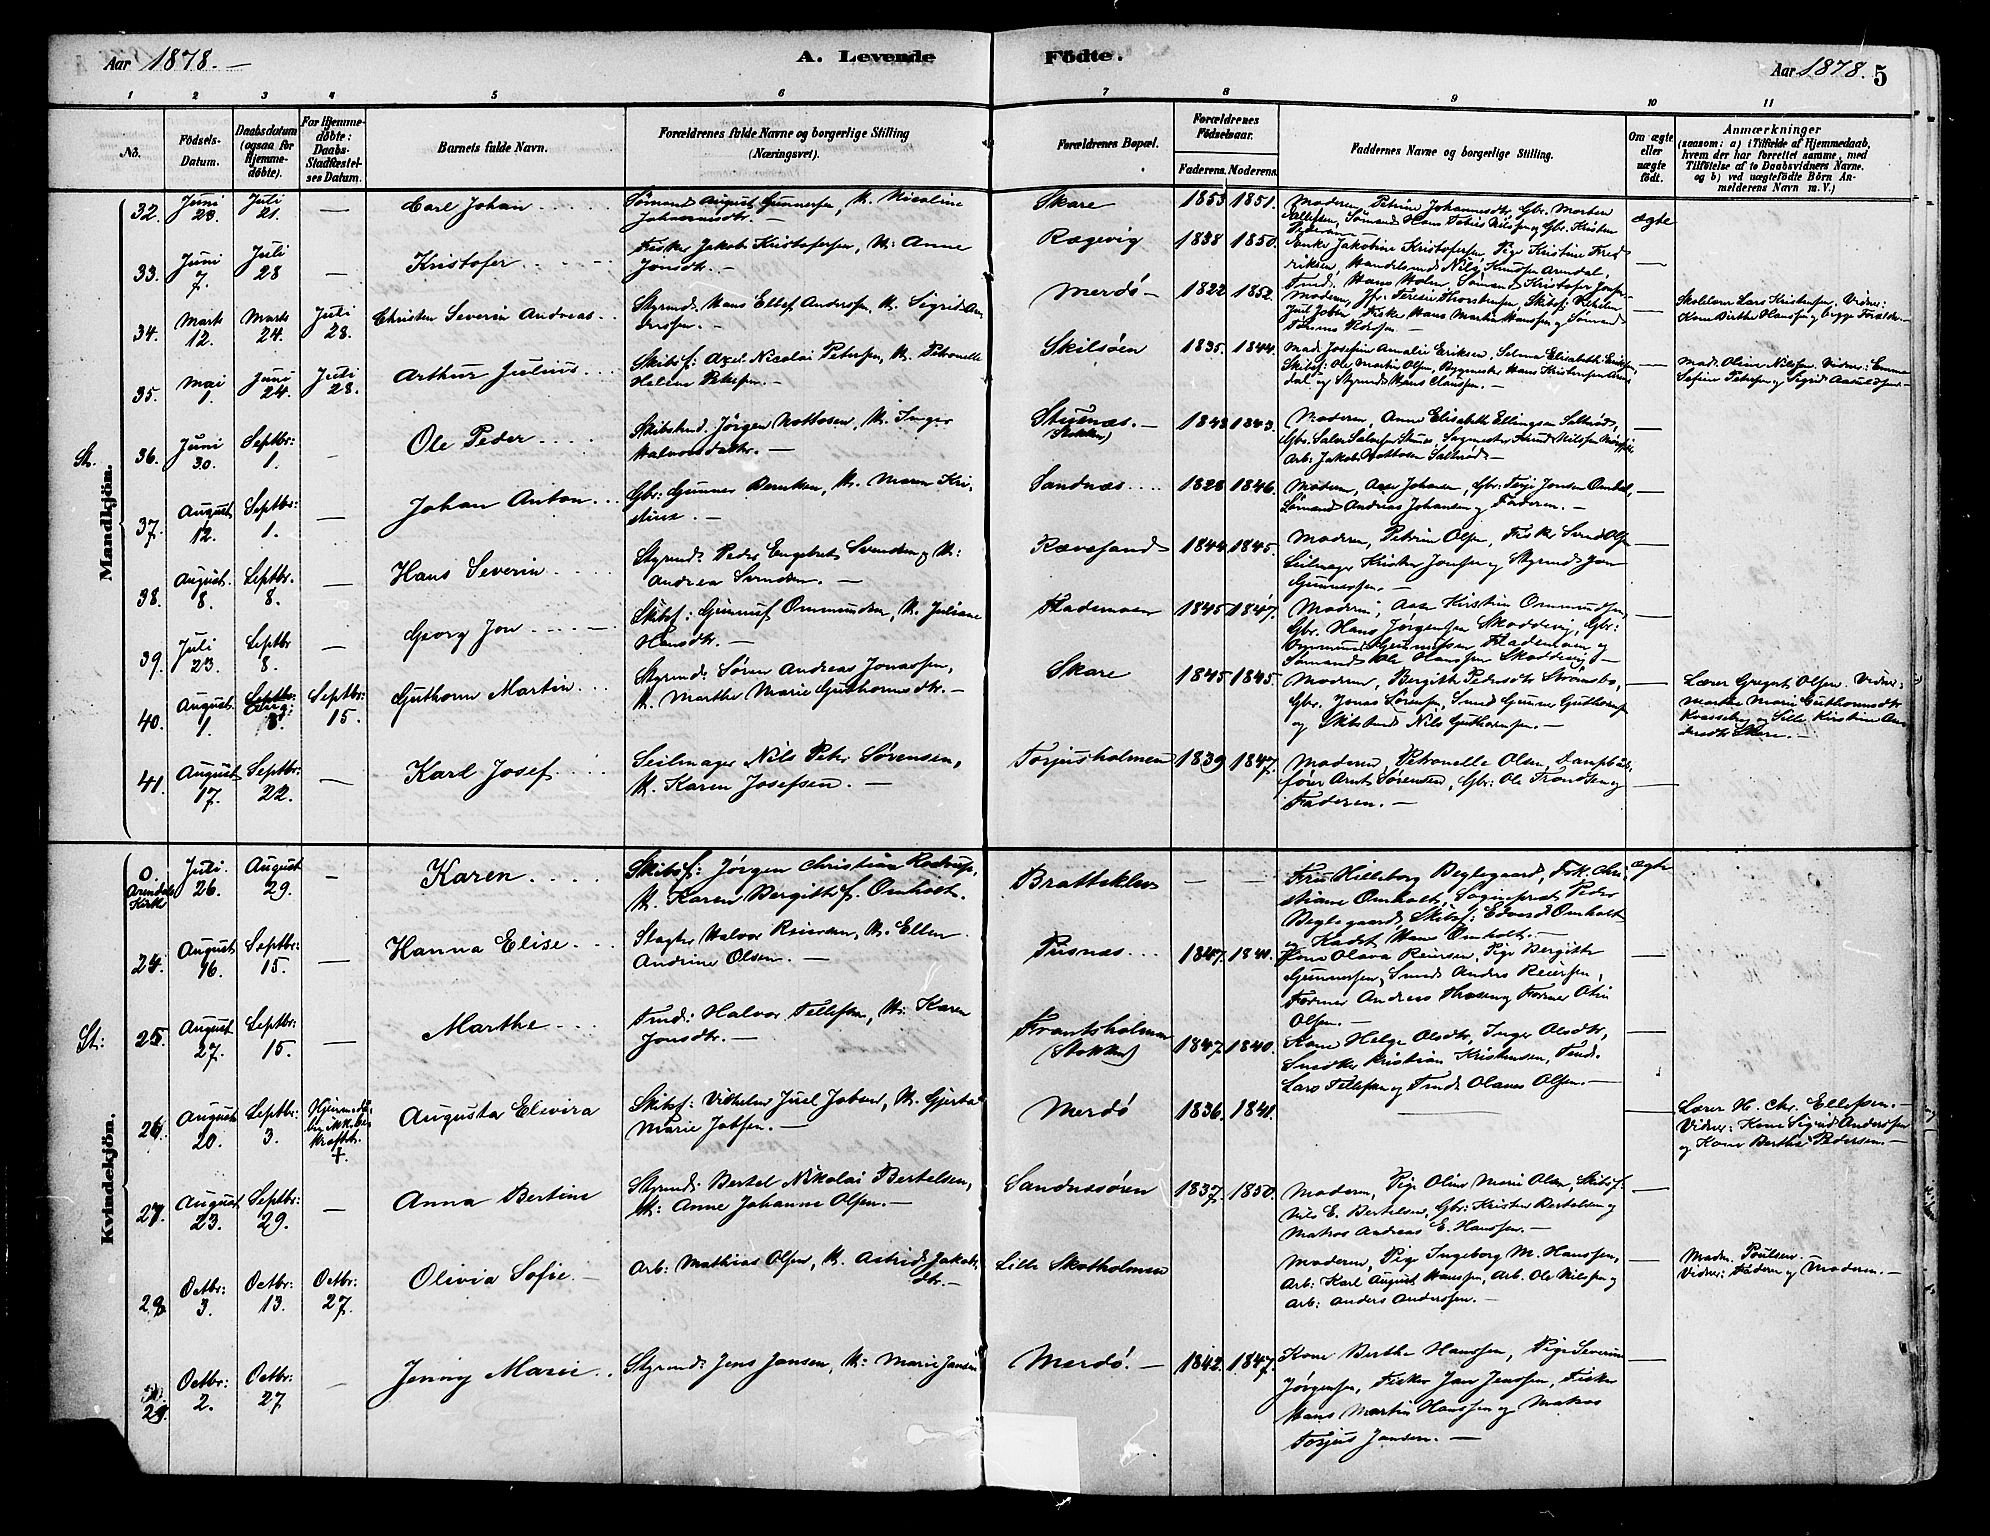 Aar 1878.
A. Levende
Födte.
Aar 1878. 5
1 2 3 4 5 6 7 8 9 10 11
No.
Födsels-
Datum.
Daabsdatum
(ogsaa for
Hjemme-
döbte).
For Hjemme-
döbte:
Daabs-
Stadfæstel-
ses Datum.
Barnets fulde Navn.
Forældrenes fulde Navne og borgerlige Stilling
(Næringsvei).
Forældrenes Bopæl.
Forældrenes
Födselsaar.
Faderens. Moderens.
Faddernes Navne og borgerlige Stilling.
Om ægte
eller
uægte
födt.
Anmærkninger
(saasom: a) i Tilfælde af Hjemmedaab,
hvem der har forrettet samme, med
Tilföielse af to Daabsvidners Navne.
og b) ved uægtefödte Börn An-
melderens Navn m. V.)
Mandkjön.
St.
32. Juni 23. Juli 21. — Carl Johan
Sømand August Gunnersen, K. Nicoline
Johannesdtr. —
Skare 1853 1851.
Moderen, Petrine Johannesdtr, Gbr. Morten
Tellefsen, Sømand Hans Tobias Nilsen og Gbr. Kristen
ægte
33. Juni 7. Juli 28 — Kristofer
Fisker Jakob Kristofersen, K: Anne
Jonsdtr. —
Rægevig 1838 1850.
Enke Jakobine Kristofersen, Pige Kristine Fred
riksen, Handelsmd Nils Knudsen Arendal,
—
34. Marts 12. Marts 24. Juli 28. Christen Severin Andreas
Styrmd. Hans Ellef Andersen, K. Sigrid An
dersen. —
Merdö — 1822 1852.
Moderen, Gfr. Terese Thorstensen, Skibsf: Vilhelm
Juel Jobsen, Fisker Hans Martin Hanssen og Sømand
—
Skolelærer Lars Kristensen, Vidner:
Kone Birthe Hanssen og begge Forældre. —
35. Mai 1. Juni 24. Juli 28. Arthur Julius
Skibsf: Axel Nicolai Petersen, K. Petronelle
Helene Petersen. —
Skilsöen 1835. 1844.
Mad. Josefine Amalie Eriksen, Selma Elisabeth Eriksen
Skibsf: Ole Martin Olsen, Bygmester Hans Kristensen Aren
dal og Styrmd: Hans Claussen. —
—
Mad. Oline Nilsen. Vidner: Emma
Sofine Petersen og Sigrid
36. Juni 30. Septbr: 1. - Ole Peder
Skibstmd. Jörgen Nottosen, K. Inger
Halvorsdatter. —
Stuenæs. —
(Stokken)
1848 1843.
Moderen, Anne Elisabeth Ellingsen Saltröd,
Gbr. Salve Salvesen Stuenæs, Sagmester Knud Nilsen
Arb: Jakob Nottosen Saltröd —
—
37. August 12. Septbr: 1. — Johan Anton
Gbr: Gunner Berntsen, K. Maren Kri-
stine. —
Sandnæs 1828 1846.
Moderen, Aase Johansen, Gbr: Terje Jonsen Omdal,
Sømand Andreas Johansen og Faderen. —
—
38. August. 8. Septbr. 8. — Hans Severin
Styrmd: Peder Engebret Svendsen og K:
Andrea Svendsen. —
Rævesand 1844 1845.
Moderen, Petrine Olsen, Fisker Svend Olsen
Seilmager Kristen Jonsen og Styrmd: Jon
Gunnersen. —
—
39. Juli 23. Septbr 8. — Georg Jon
Skibsf: Gunnuf Ommundsen, K. Juliane
Hansdtr. —
Flademoen 1845 1847.
Moderen, Aase Kirstine Ommundsen,
Gbr. Hans Jörgensen Skoddevig, Gbr:
Ommund Gunnufsen Flademoen og
Sømand Ole Hanssen Skoddevig. —
—
40. August 1. Septbr: 8. Septbr: 15. Guthorm Martin
Styrmd: Sören Andreas Jonassen,
K. Marthe Marie Guthormsdtr. —
Skare 1845 1845.
Moderen, Bergith Pedersdtr Strömsbo,
Gbr. Jonas Sörensen, Smed Gunner Guthormsen
og Skibstmd Nils Guthormsen. —
—
Lærer Gregert Olsen. Vidner:
Marthe Marie Guthormsdtr
og Sille Kirstine An
dersdtr Skare. —
41. August 17. Septbr: 22. — Karl Josef
Seilmager Nils Peter Sørensen,
K. Karen Josefsen. —
Torjusholmen 1839 1847.
Moderen, Petronelle Olsen, Dampbaad
förer Arnt Sørensen, Gbr: Ole Trondsen og
Faderen. —
—
Kvindekjön.
0. Arendals Kirke Juli 26. August 29. - Karen
Skibsf: Jørgen Christian
K. Karen Bergitte f. Omholt.
Bratteklev — —
Fru Hilleborg Beglegaard, Frk. Chri-
stiane Omholt, Sogneprest Peder
Beglegaard, Skibsf: Edvard Omholt
og Kadet Hans Omholt. —
ægte
24. August 16. Septbr: 15. — Hanna Elise
Slagter Halvor Reiersen, K. Ellen
Andrine Olsen. —
Pusnæs 1847. 1841.
Kone Olava Reiersen, Pige Bergitte
Gunnersen, Smed Anders Reiersen,
Former Andreas Thorsen og Former Olin
Olsen. —
—
St:
25. August 27. Septbr: 15. — Marthe
Tmd: Halvor Tellefsen, K: Karen
Jonsdtr. —
Frantsholmen
(Stokken)
1847. 1840.
Kone Helge Olsdtr, Inger Olsdtr,
Snedker Kristian Kristensen, Tmd.
Lars Tellefsen og Tmd: Olaves Olsen. —
—
26. August 20. Septbr: 3. Hjemmedaab ikke be kræftet. + Augusta Elevira
Skibsf: Vilhelm Juel Jobsen, K. Gjertas
Marie Jobsen. —
Merdö 1836. 1841.
—
—
Lærer H. Chr. Ellefsen. —
Vidner: Kone Sigrid Anderssen
og Kone Berthe Pedersen. —
27. August 23. Septbr: 29. — Anna Bertine
Styrmd: Bertel Nikolai Bertelsen,
K: Anne Johanne Olsen. —
Sandnæsören 1837. 1850.
Moderen, Pige Oline Marie Olsen, Skibsf.
Nils E. Bertelsen, Gbr: Kristen Bertelsen og
Matros Andreas E. Hanssen. —
—
28. Octbr: 3. Octbr: 13. Octbr: 27. Olivia Sofie. —
Arb: Mathias Olsen, K. Astrid Jakobs
dtr. —
Lille Skotholmen
Moderen, Pige Ingeborg M. Hanssen,
Arb: Karl August Hanssen, Arb. Ole Nilsen og
Arb: Anders Anderssen. —
—
Madm. Poulsen.
Vidner: Faderen og Moderen. —
29. Octbr: 2. Octbr: 27 — Jenny Marie
Styrmd: Jens Jansen, K: Marie Jansen
Merdö. — 1842. 1847.
Kone Berthe Hanssen, Pige Severine
Jørgensen, Fisker Jan Jenssen, Fisker
Hans Martin Hanssen og Matros
Torjus Jansen. —
—